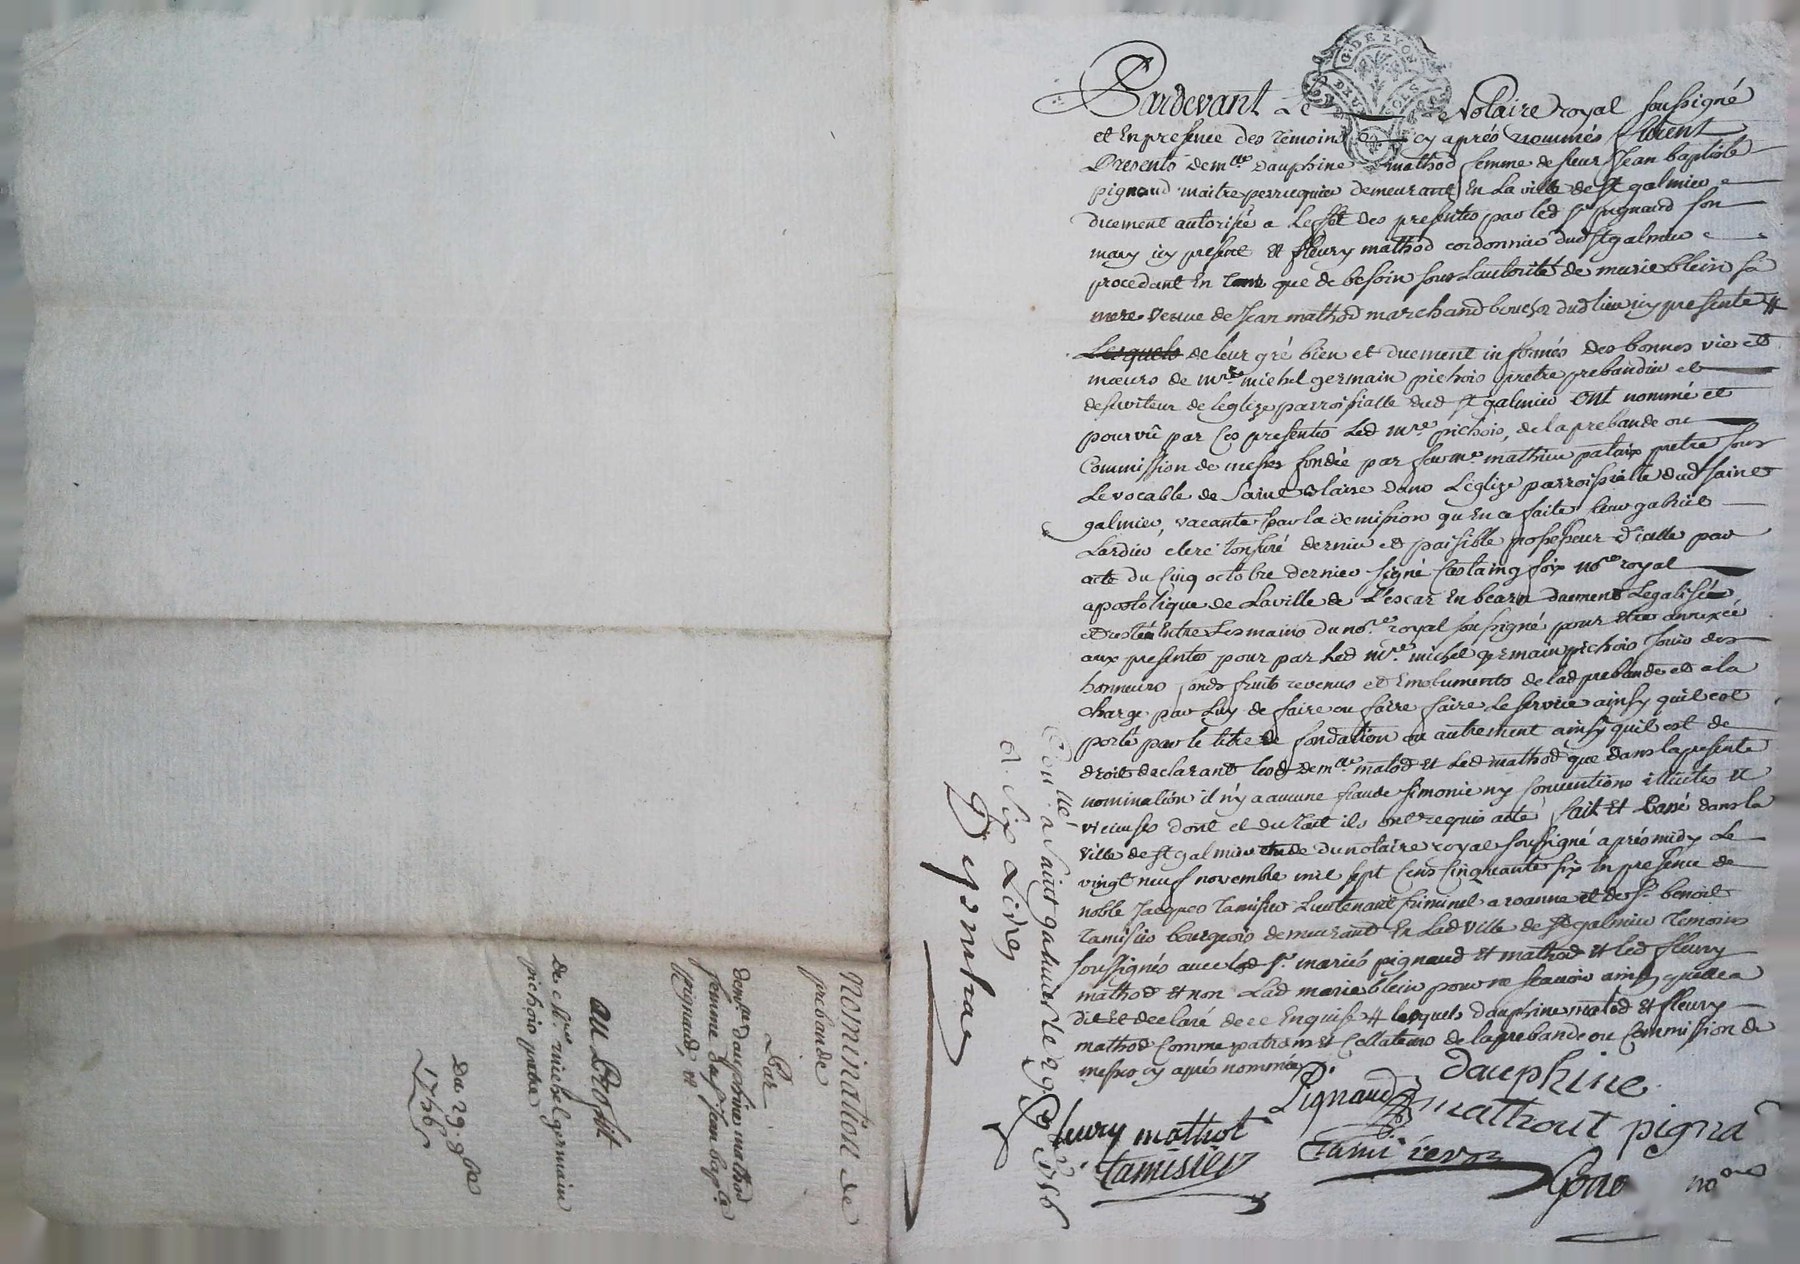 G. DE LYON
DEUX SOLS
Pardevant Le Notaire royal soussigné
et En presence des temoins cy aprés nommés furent
Presents dem.lle dauphine mathod femme de sieur Jean baptiste
pignaud maitre perruquier demeurant En La ville de St galmier
duement autorisée a Leffet des presentes par led sr. pignaud son
mary icy present et fleury mathod cordonnier dud St galmier
procedant En tant que de besoin sous Lautorité de marie blein sa
mere veuve de Jean mathod marchand boucher dud lieu icy presente #
Lesquels de leur gré bien et duement informés des bonnes vie et
mœurs de mre. michel germain pichois pretre prebandier et
deserviteur de leglize parroissialle dud St galmier ont nommé et
pourvû par Ces presentes Led mre. pichois, de la prebande ou
Commission de messes fondée par feu mre. mathieu pataix pretre sous
Le vocable de Sainte Claire dans L'eglize parroissialle dud saint
galmier, vacante par la demission qu En a faite sieur gabriel
Lardier clerc tonsuré dernier et paisible possesseur d'icelle par
acte du Cinq octobre dernier signé Castaing foix nore. royal
apostolique de La ville de L'escar En bearn duement Legalisée
et restée Entre Les mains du nore. royal soussigné pour Etre annexée
aux presentes pour par Led mre. michel germain pichois Jouir des
honneurs fonds fruits revenus et Emoluments de lad prebande et a la
Charge par Luy de faire ou faire faire Le service ainsy quil est
porté par le titre de fondation ou autrement ainsy quil est de
droit declarant lesd dem.lle matod et Led mathod que dans la presente
nomination il n'y a aucune fraude simonie ny Conventions illicites et
vicieuses dont et du tout ils ont requis acte fait et Passé dans la
ville de St galmier etude du notaire royal soussigné aprés midy Le
vingt neuf novembre mil sept Cens Cinquante six En presence de
noble Jacques tamisier Lieutenant Criminel a roanne et de sr. benoit
tamisier bourgeois demeurant En Lad ville de St galmier temoins
soussignés avec led sr. mariés pignaud et mathod et led fleury
mathod et non Lad marie blein pour ne scavoir ainsy quelle a
dit et declaré de ce Enquise # lesquels dauphine matod et fleury
mathod Comme patrons et Collateurs de la prebande ou Commission de
messes cy aprés nommée
Pignaud
dauphine
mathout pigna
fleury mathot
tamisier
tamisier
Gono nore
Con.llé a Saint galmier le 9 Xbre 1756
R. Six Livres
Nomination de
prebande
Par
demlle dauphine mathod
femme du sr Jean bapte
pignaud, et
au Profit
de Mre michel germain
pichois pretre
Du 29. 9bre
1756